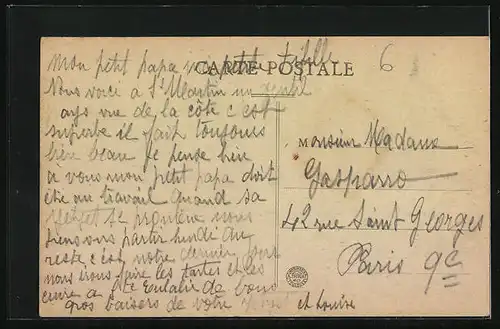 Mon petit papa
CARTE POSTALE
6
Nous voici à St Martin un
pays vue de la côte c'est
superbe il fait toujours
bien beau je pense bien
à vous mon petit papa doit
être au travail quand sa
nous
pensons partir lundi du
reste c'est notre dernier jour
nous irons faire les tartes et les
cuire à Ste Eulalie de bons
gros baisers de votre et Louise
Monsieur Madame
Gasparro
42 rue Saint Georges
Paris 9e